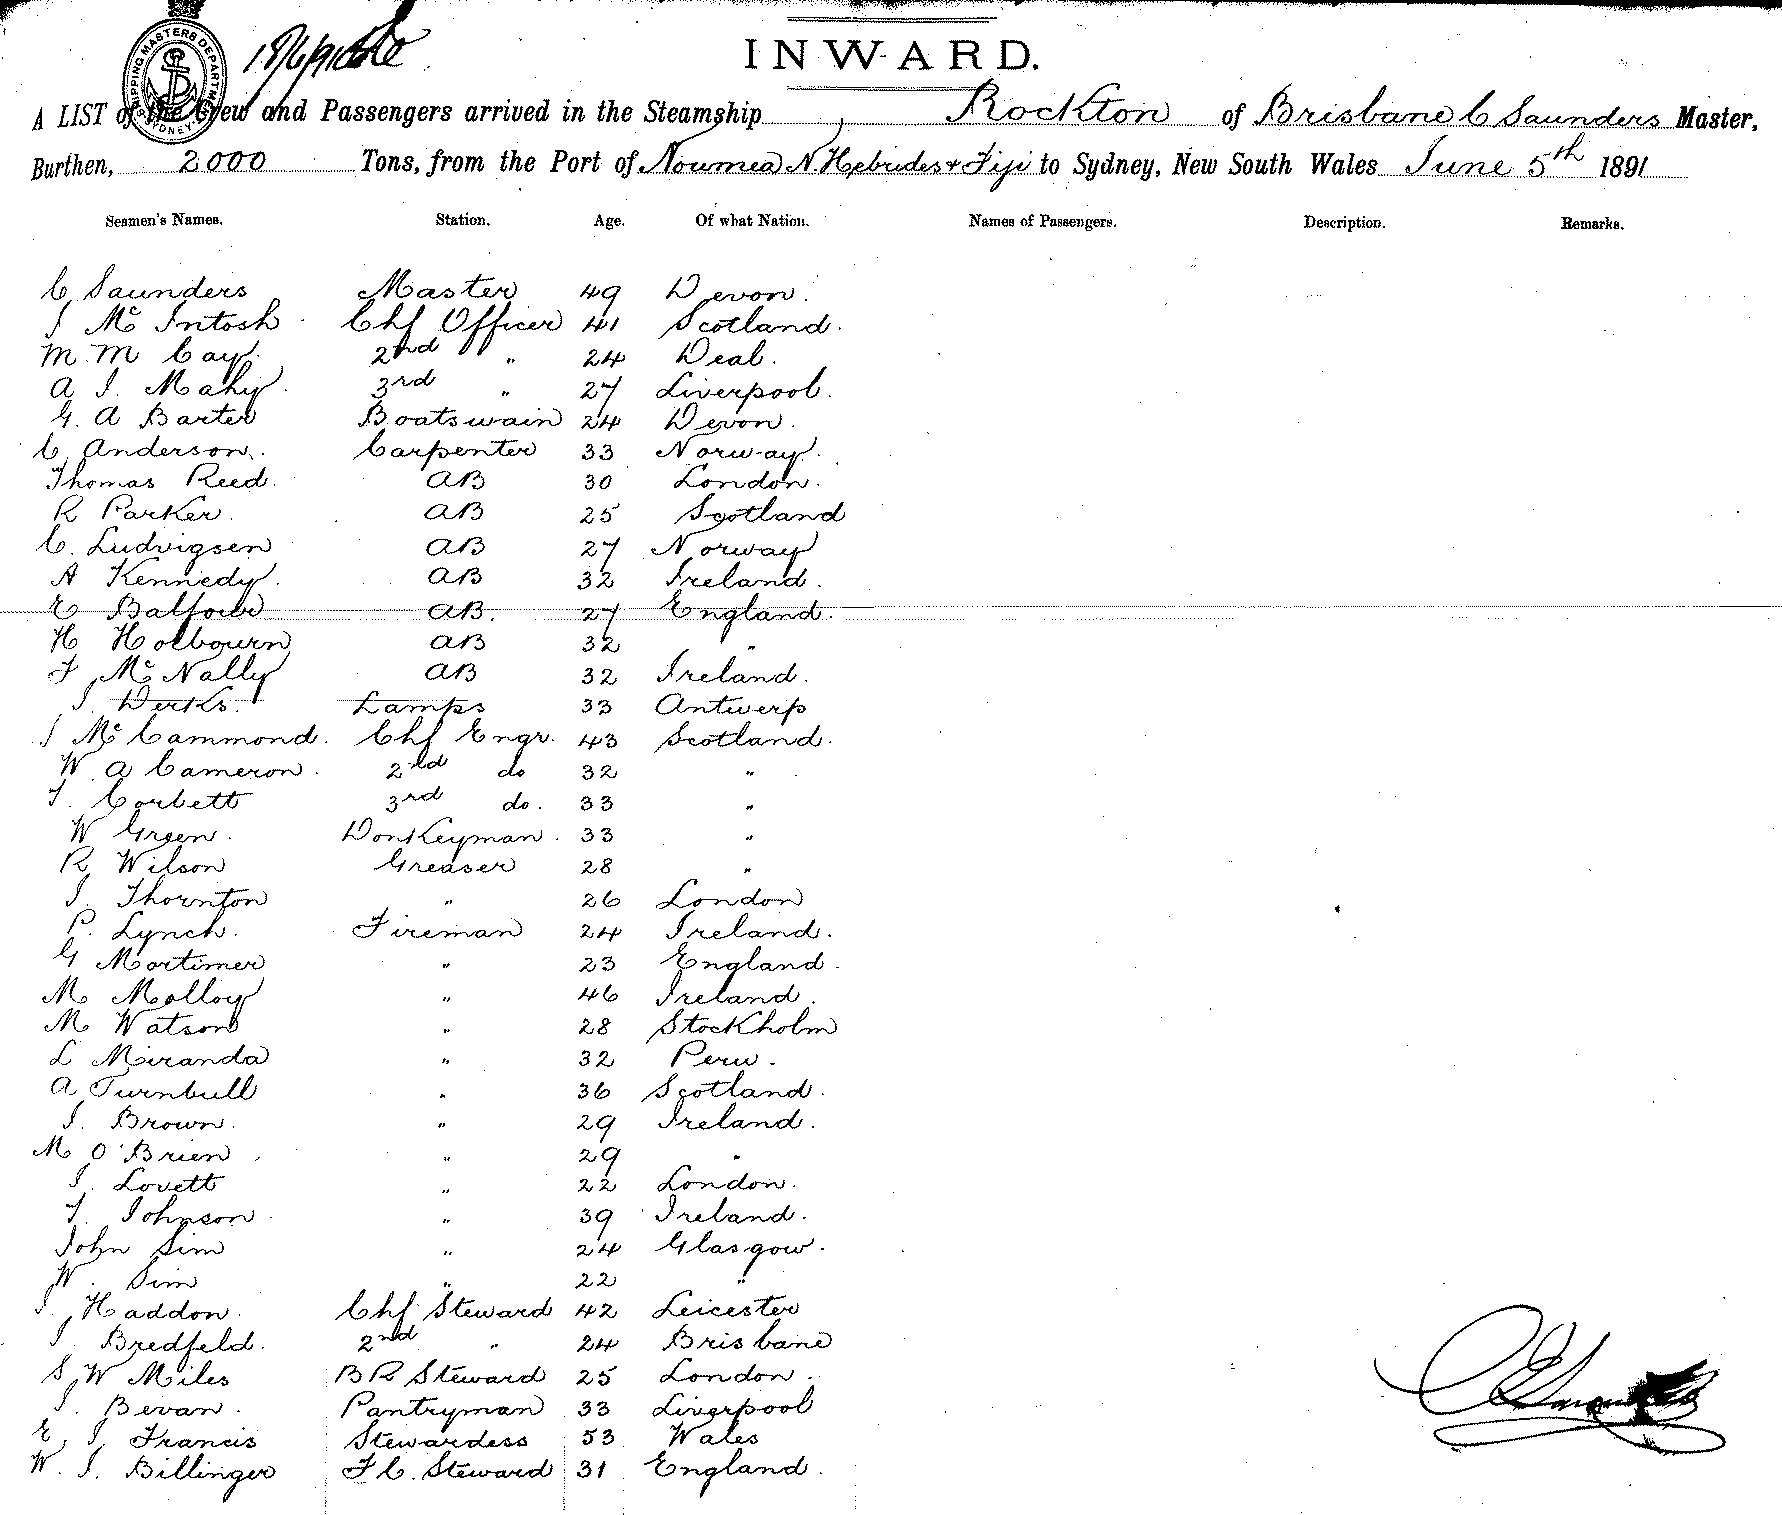 SHIPPING MASTERS DEPARTMENT SYDNEY
INWARD.
A LIST of the Crew and Passengers arrived in the Steamship Rockton of Brisbane C Saunders Master,
Burthen, 2000 Tons, from the Port of Noumea, N. Hebrides & Fiji to Sydney, New South Wales June 5th 1891
Seamen's Names. Station. Age. Of what Nation. Names of Passengers. Description. Remarks.
C Saunders Master 49 Devon.
J Mc Intosh Chf Officer 41 Scotland.
M. M Cay. 2nd " 24 Deal.
A J. Mahy. 3rd " 27 Liverpool.
G. A Barter Boatswain 24 Devon.
C Anderson. Carpenter 33 Norway.
Thomas Reed. AB 30 London.
R Parker. AB 25 Scotland
C. Ludvigsen AB 27 Norway
A Kennedy. AB 32 Ireland.
E Balfour AB. 27 England.
H Holbourn AB 32 "
F McNally AB 32 Ireland.
J. Derks. Lamps 33 Antwerp
J Mc Cammond. Chf Engr. 43 Scotland.
W A Cameron. 2nd do 32 "
T. Corbett 3rd do. 33 "
W Green. Donkeyman. 33 "
R Wilson Greaser 28 "
J. Thornton " 26 London
P. Lynch. Fireman 24 Ireland.
G Mortimer " 23 England.
M Molloy " 46 Ireland.
M Watson " 28 Stockholm
L Miranda " 32 Peru.
A Turnbull " 36 Scotland.
J. Brown. " 29 Ireland.
M O'Brien " 29 "
J. Lovett " 22 London.
T. Johnson. " 39 Ireland.
John Sim " 24 Glasgow.
W. Sim " 22 "
J. Haddon. Chf Steward 42 Leicester
J. Bredfeld. 2nd " 24 Brisbane
S. W Miles BR Steward 25 London.
J. Bevan. Pantryman 33 Liverpool
E. J. Francis Stewardess 53 Wales
W. J. Billinger F C. Steward 31 England.